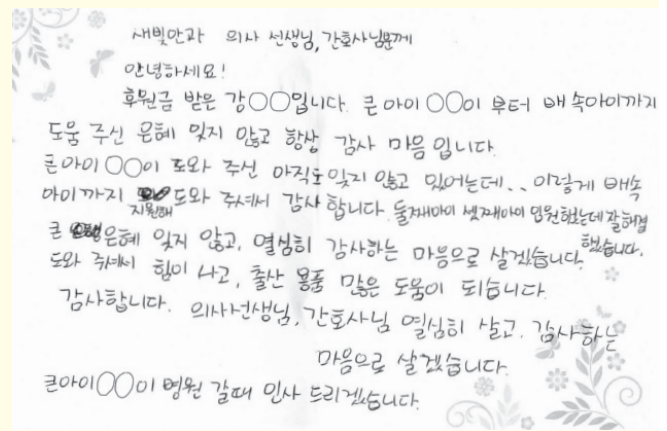 새빛안과 의사 선생님, 간호사님분께
안녕하세요!
후원금 받은 강○○입니다. 큰 아이 ○○이 부터 배 속아이까지
도움 주신 은혜 잊지 않고 항상 감사 마음 입니다.
큰아이 ○○이 도와 주신 아직도 잊지 않고 있어는데.. 이렇게 배속
아이까지 지원해 도와 주셔서 감사 합니다. 둘째아이 셋째아이 입원했는데 잘 해결
했습니다.
큰 은혜 잊지 않고, 열심히 감사하는 마음으로 살겠습니다.
도와 주셔서 힘이 나고, 출산 용품 많은 도움이 되습니다.
감사합니다. 의사선생님, 간호사님 열심히 살고, 감사하는
마음으로 살겠습니다.
큰아이○○이 병원 갈때 인사 드리겠습니다.